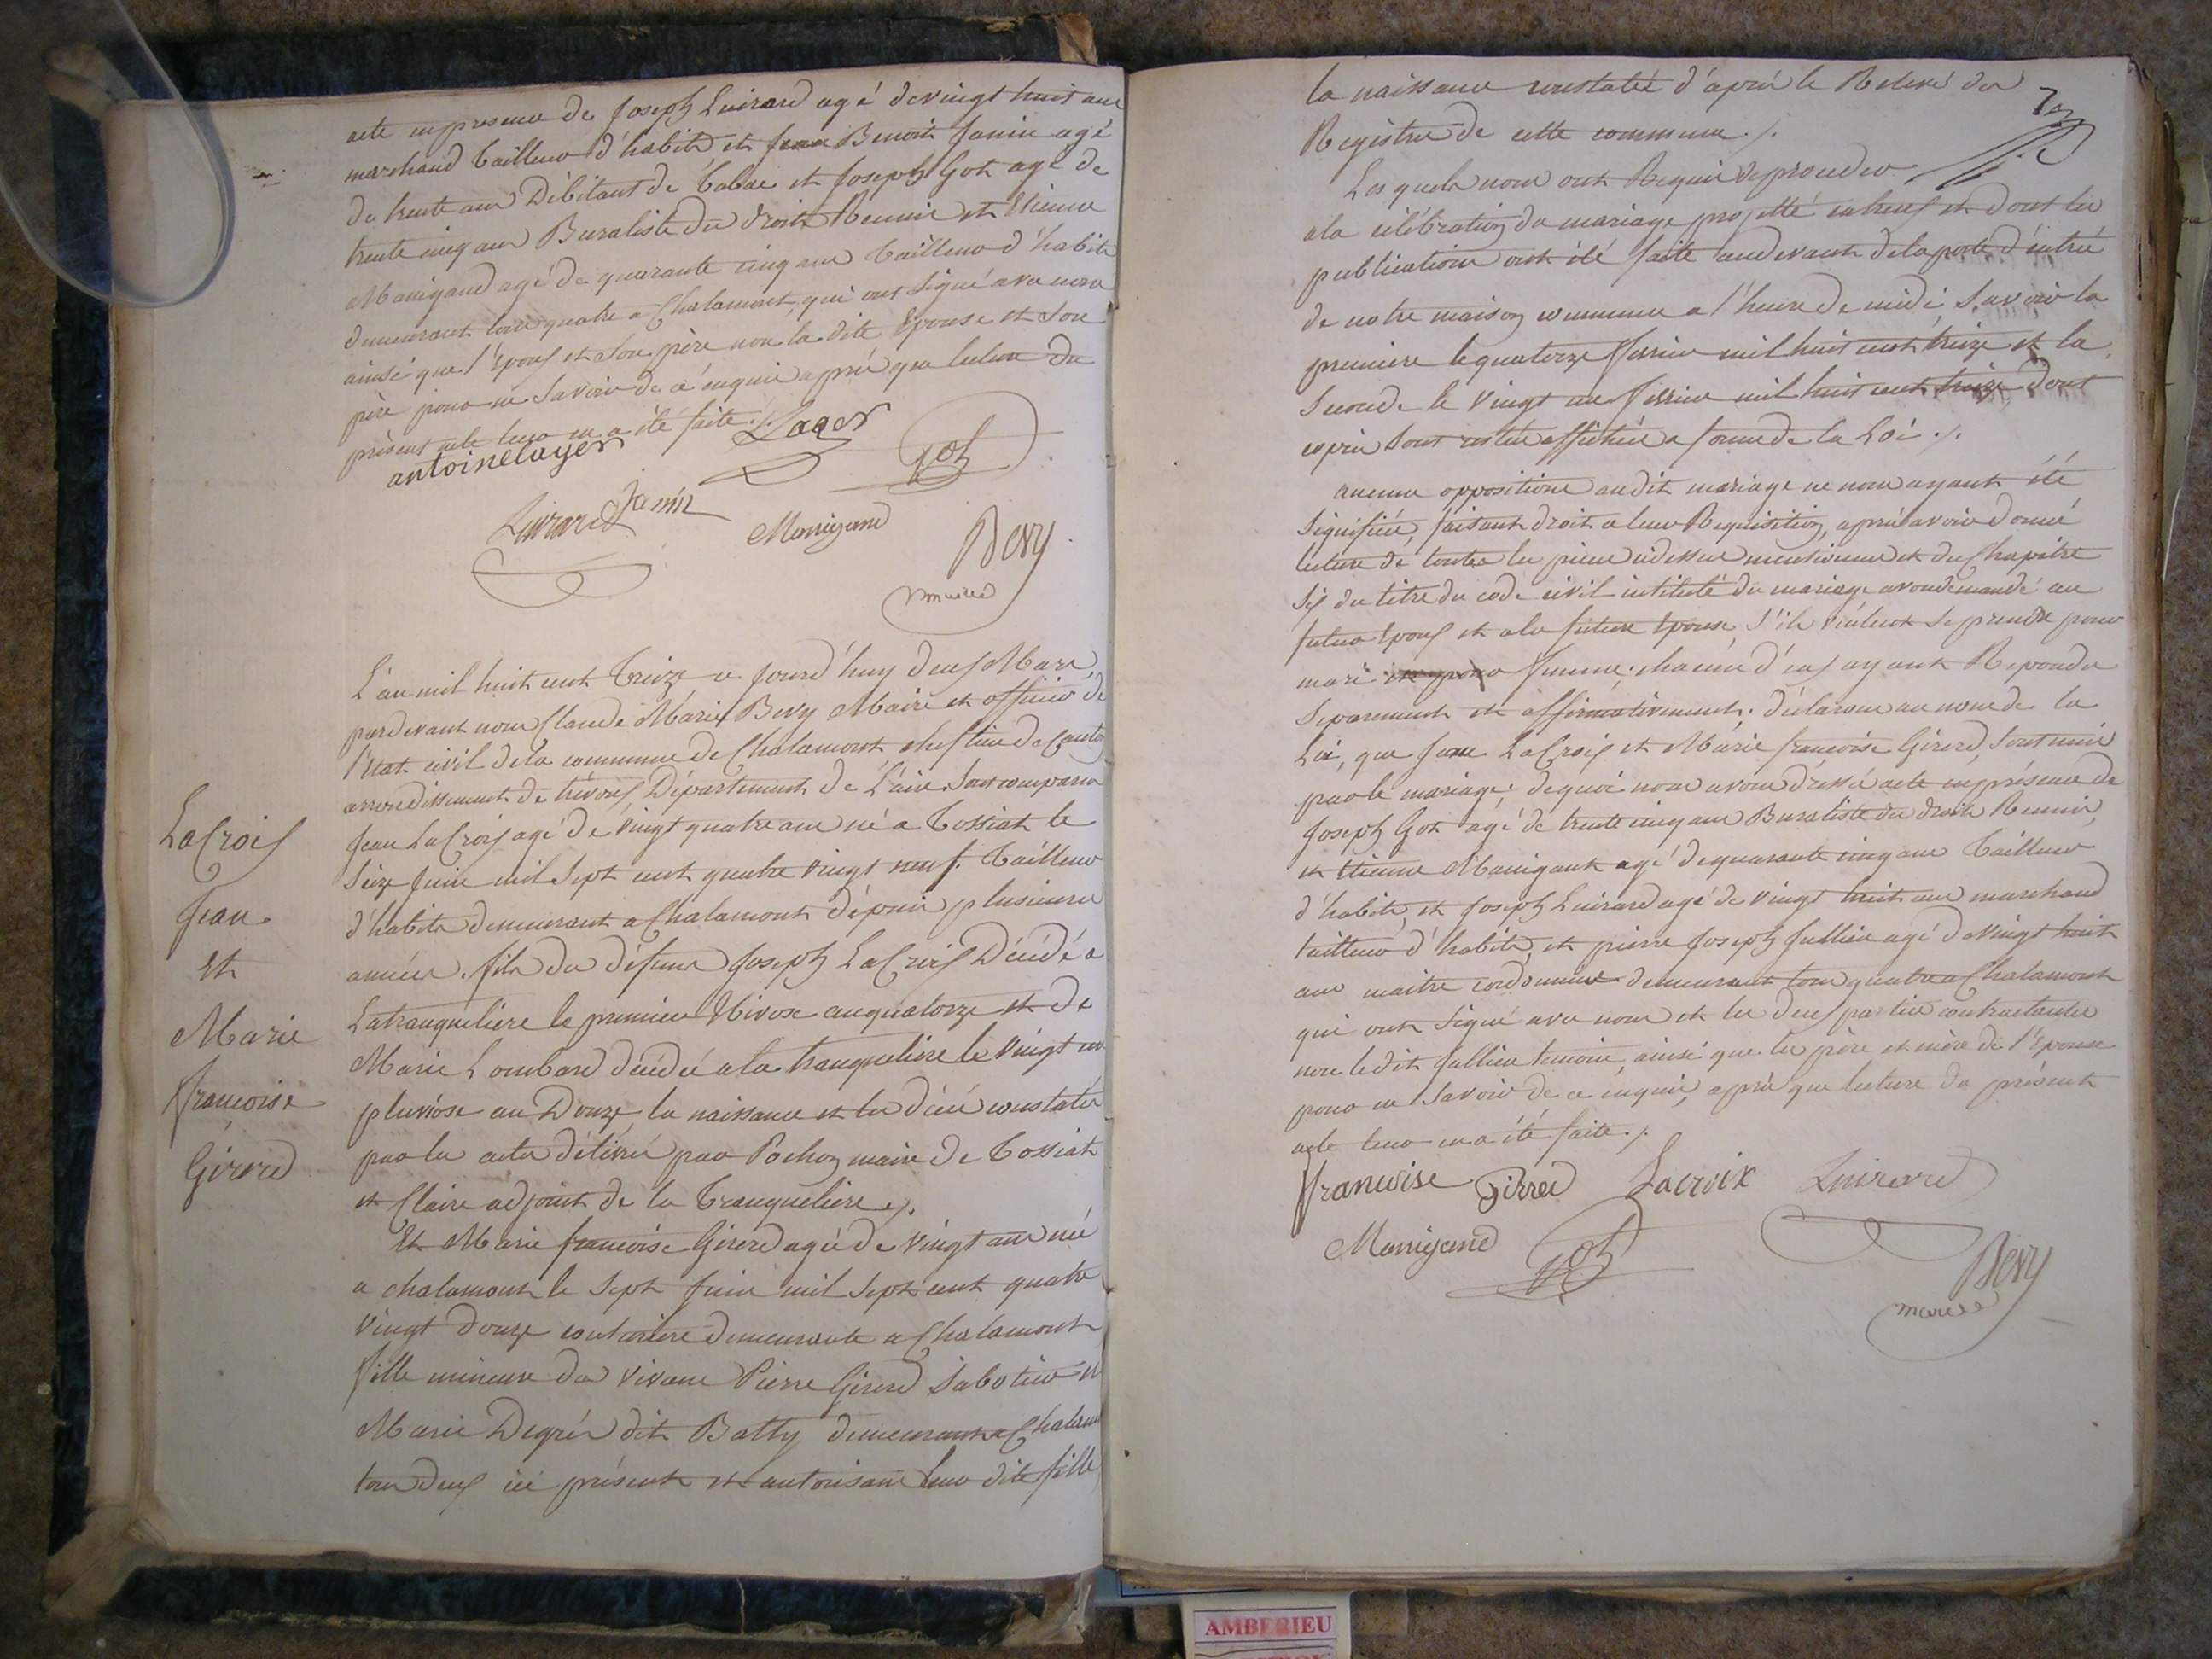 acte en presence de Joseph Luirard agé de vingt huit ans
marchand Tailleur d'habits et Jean Benoit Janin agé
de trente ans Débitant de Tabac et Joseph Got agé de
trente cinq ans Buraliste des droits Reunis et Etienne
Manigand agé de quarante cinq ans Tailleur d'habits
demeurant tous quatre a Chalamont, qui ont signé avec nous
ainsi que l'Epoux et son père non la dite Epouse et son
père pour ne savoir de ce enquis après que lecture du
présent acte leur en a été faite ./.
antoine layer Lager Got
Luirard Janin Manigand Bevy
maire
L'an mil huit cent Treize ce jourd'huy deux Mars,
pardevant nous Claude Marie Bevy Maire et officier de
l'Etat civil de la commune de Chalamont chef lieu de Canton
arrondissement de trévoux, Département de L'ain. Sont comparus
Jean LaCroix agé de Vingt quatre ans né a Tossiat le
Seize Juin mil Sept cent quatre vingt neuf. Tailleur
d'habits demeurant a Chalamont dépuis plusieurs
années. fils de défunt Joseph LaCroix Décédé a
Latranqueliere le premier Nivose an quatorze et de
Marie Lombard décédée a la tranqueliere le vingt un
pluviose an Douze, la naissance et les décé constatés
par les actes délivré par Pochon maire de Tossiat
et Claire adjoint de la Tranqueliere ./.
Et Marie francoise Girerd agée de Vingt ans née
a chalamont le Sept Juin mil Sept cent quatre
Vingt Douze couturiere demeurante a Chalamont
fille mineure de vivans Pierre Girerd Sabotier et
Marie Degrés dit Batty demeurant a Chalamont
tous deux ici présents et autorisant leur dite fille
LaCroix
Jean
Et
Marie
francoise
Girerd
la naissance constatée d'aprés le Relevé des
Registres de cette commune ./.
Les quels nous ont Requis de proceder
a la célébration du mariage projetté entreux et dont les
publications ont été faite audevant de la porte d'entrée
de notre maison commune a l'heure de midi, Savoir la
premiere le quatorze fevrier mil huit cent treize et la
Seconde le Vingt un fevrier mil huit cent treize, dont
copies sont restées affichées a forme de la Loi ./.
aucune opposition audit mariage ne nous ayant été
Signifiée, faisant droit a leur Requisition, après avoir donné
lecture de toutes les pieces cidessus mentionnées et du Chapitre
Six du titre du code civil intitulé du mariage avons demandé au
futur Epoux et a la future Epouse, s'ils veulent se prendre pour
mari et pour femme; chacun d'eux ayant Repondu
Separement et affirmativement; déclarons au nom de la
Loi, que Jean LaCroix et Marie francoise Girerd, Sont unis
par le mariage; de quoi nous avons dressé acte en présence de
Joseph Got agé de trente cinq ans Buraliste des droits Reunis,
et Etienne Manigant agé de quarante cinq ans Tailleur
d'habits, et Joseph Luirard agé de Vingt huit ans marchand
tailleur d'habits, et pierre Joseph Jullien agé de Vingt huit
ans maitre cordonnier demeurant tous quatre a Chalamont
qui ont signé avec nous et les deux parties contractantes
non ledit Jullien temoin, ainsi que les père et mère de l'Epouse
pour ne savoir de ce enquis, après que lecture du présent
acte leur en a été faite ./.
francoise Girred Lacroix Luirard
Manigand Got Bevy
maire
AMBERIEU